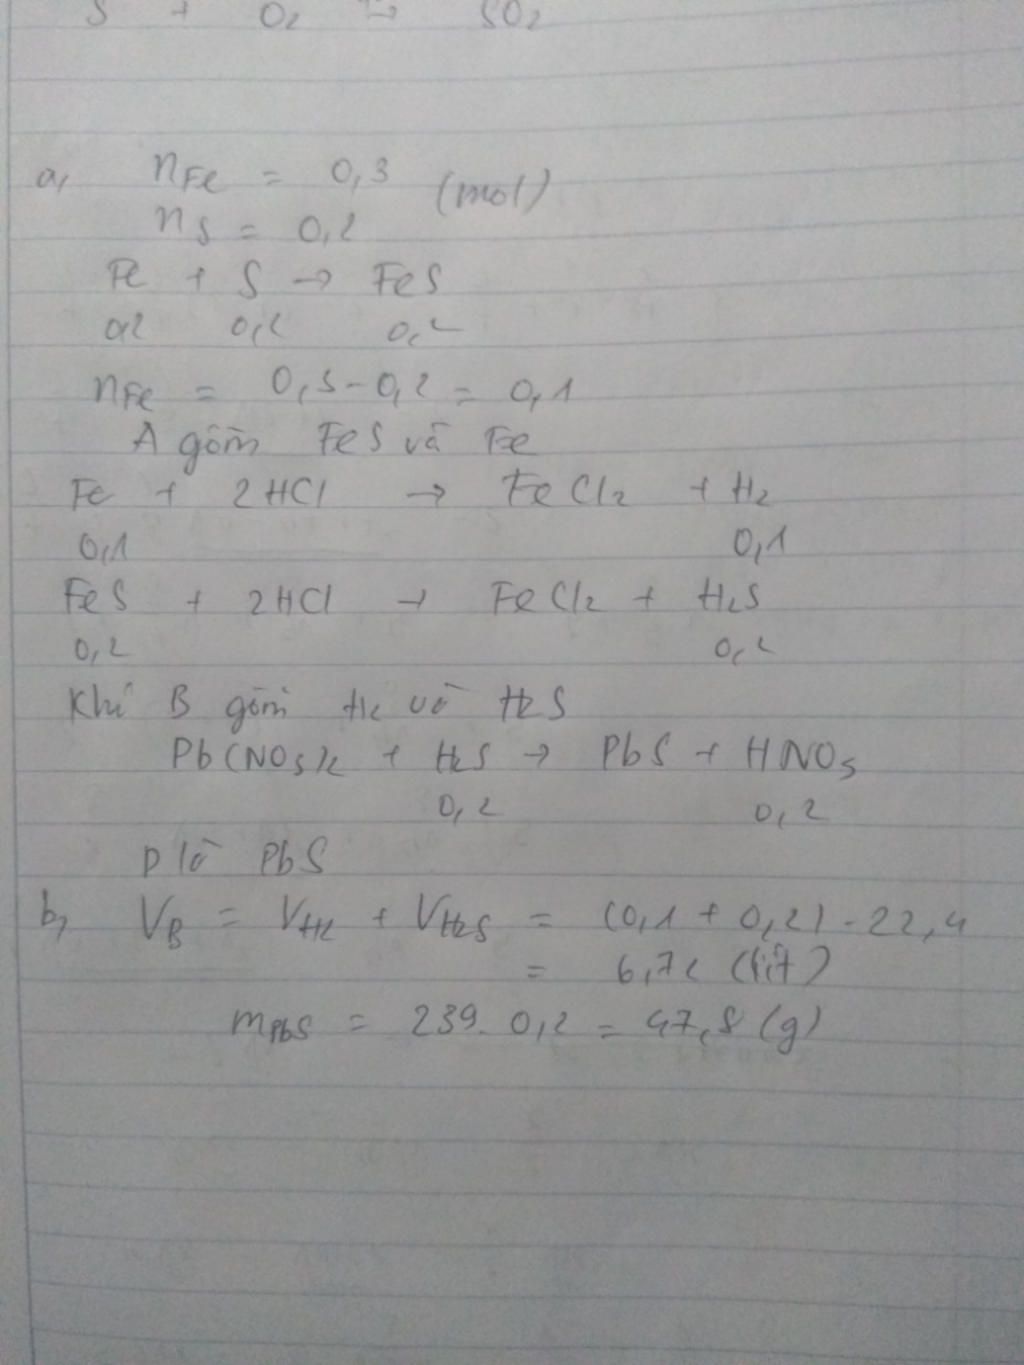 S + O2 → SO2
a, nFe = 0,3 (mol)
nS = 0,2
Fe + S → FeS
0,2 0,2 0,2
nFe = 0,3 - 0,2 = 0,1
A gồm FeS và Fe
Fe + 2HCl → FeCl2 + H2
0,1 0,1
FeS + 2HCl → FeCl2 + H2S
0,2 0,2
Khí B gồm H2 và H2S
Pb(NO3)2 + H2S → PbS + HNO3
0,2 0,2
D là PbS
b, VB = VH2 + VH2S = (0,1 + 0,2) . 22,4
= 6,72 (lít)
mPbS = 239. 0,2 = 47,8 (g)